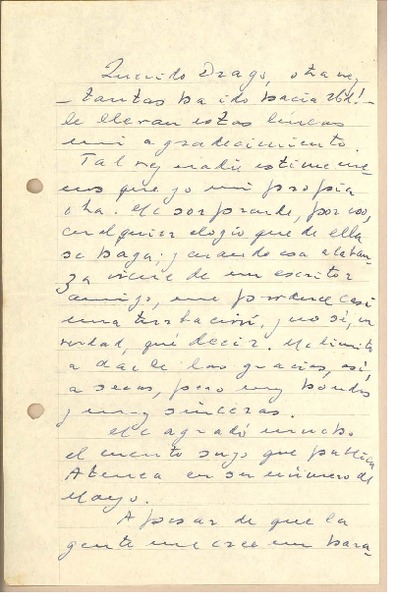 Querido Drago, otra vez
— tantas ha ido hacia Ud! —
le llevan estas líneas
mi agradecimiento.
Tal vez nadie estime me-
nos que yo mi propia
obra. Me sorprende, por eso,
cualquier elogio que de ella
se haga; y cuando esa alaban-
za viene de un escritor
amigo, me produce casi
una turbación, y no sé, en
verdad, qué decir. Me limito
a darle las gracias, así,
a secas, pero muy hondas
y muy sinceras.
Me agradó mucho
el cuento suyo que publica
Atenea en su número de
Mayo.
A pesar de que la
gente me cree un hara-